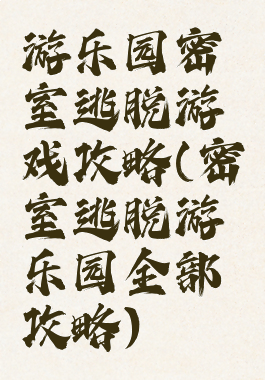 游乐园密
室逃脱游
戏攻略(密
室逃脱游
乐园全部
攻略)